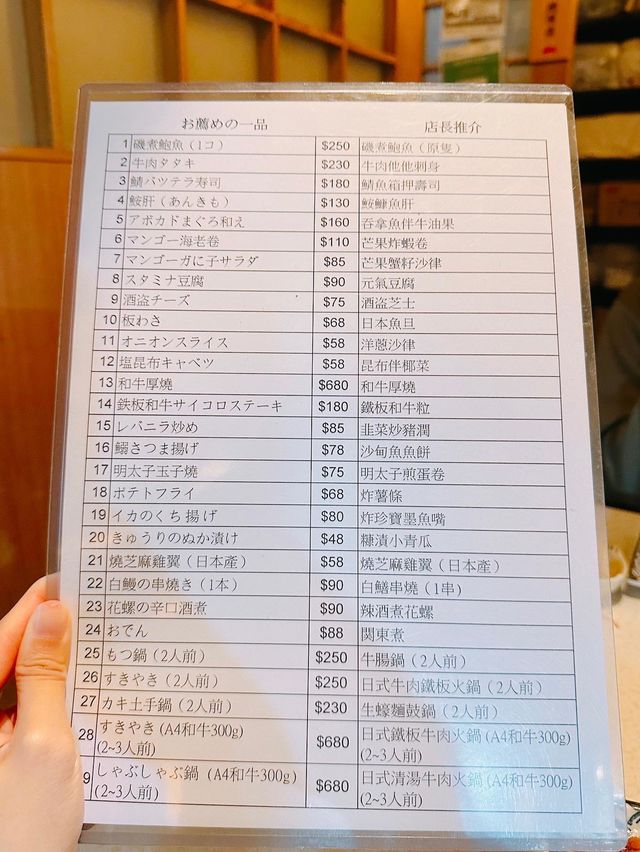 お薦めの一品 店長推介
1 磯煮鮑魚（1コ） $250 磯煮鮑魚（原隻）
2 牛肉タタキ $230 牛肉他他刺身
3 鯖バツテラ寿司 $180 鯖魚箱押壽司
4 鮟肝（あんきも） $130 鮟鱇魚肝
5 アボカドまぐろ和え $160 吞拿魚伴牛油果
6 マンゴー海老卷 $110 芒果炸蝦卷
7 マンゴーガに子サラダ $85 芒果蟹籽沙律
8 スタミナ豆腐 $90 元氣豆腐
9 酒盗チーズ $75 酒盗芝士
10 板わさ $68 日本魚旦
11 オニオンスライス $58 洋蔥沙律
12 塩昆布キャベツ $58 昆布伴椰菜
13 和牛厚燒 $680 和牛厚燒
14 鉄板和牛サイコロステーキ $180 鐵板和牛粒
15 レバニラ炒め $85 韭菜炒豬潤
16 鰯さつま揚げ $78 沙甸魚魚餅
17 明太子玉子燒 $75 明太子煎蛋卷
18 ポテトフライ $68 炸薯條
19 イカのくち揚げ $80 炸珍寶墨魚嘴
20 きゅうりのぬか漬け $48 糠漬小青瓜
21 燒芝麻雞翼（日本產） $58 燒芝麻雞翼（日本產）
22 白鰻の串燒き（1本） $90 白鱔串燒（1串)
23 花螺の辛口酒煮 $90 辣酒煮花螺
24 おでん $88 関東煮
25 もつ鍋（2人前） $250 牛腸鍋（2人前）
26 すきやき（2人前） $250 日式牛肉鐵板火鍋（2人前）
27 カキ土手鍋（2人前） $230 生蠔麵豉鍋（2人前）
28 すきやき (A4和牛300g) $680 日式鐵板牛肉火鍋 (A4和牛300g)
(2~3人前) (2~3人前)
9 しゃぶしゃぶ鍋 (A4和牛300g) $680 日式清湯牛肉火鍋 (A4和牛300g)
(2~3人前) (2~3人前)